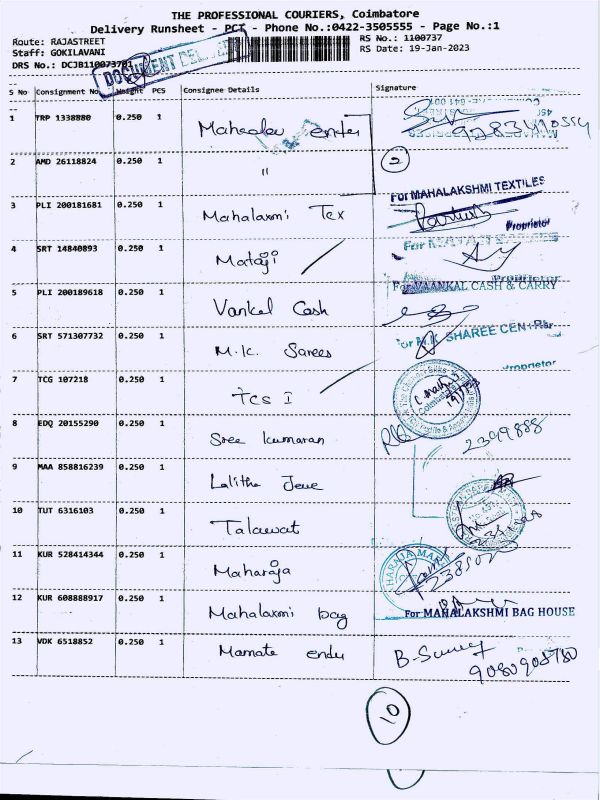 THE PROFESSIONAL COURIERS, Coimbatore
Delivery Runsheet - PCT - Phone No.:0422-3505555 - Page No.:1
Route: RAJASTREET
RS No.: 1100737
Staff: GOKILAVANI
RS Date: 19-Jan-2023
DRS No.: DCJB110073701
DOCUMENT
S No Consignment No. Weight PCS Consignee Details Signature
1 TRP 1338880 0.250 1
2 AMD 26118824 0.250 1 " 2
For MAHALAKSHMI TEXTILES
3 PLI 200181681 0.250 1 Mahalaxmi Tex
Proprietor
4 SRT 14840893 0.250 1 Mataji
Proprietor
For VAANKAL CASH & CARRY
5 PLI 200189618 0.250 1 Vankal Cash
For M.K. SHAREE CENTRE
6 SRT 571307732 0.250 1 M.K. Sarees
Proprietor
7 TCG 107218 0.250 1 TCS I
The Chennai Silks
8 EDQ 20155290 0.250 1 Sree Kumaran 2399888
9 MAA 858816239 0.250 1 Lalitha
10 TUT 6316103 0.250 1 Talawat
11 KUR 528414344 0.250 1 Maharaja
12 KUR 608888917 0.250 1 Mahalaxmi bag
For MAHALAKSHMI BAG HOUSE
13 VDK 6518852 0.250 1 Mamata
10